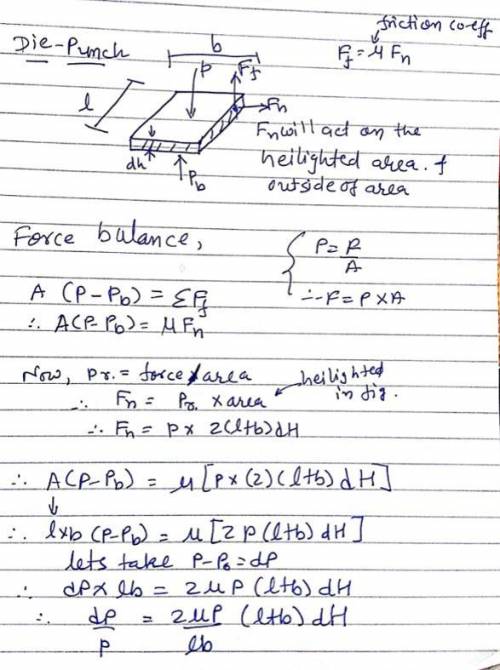 friction coeff
Die-Punch
b
F_f = μ F_n
P
F_f
l
F_n
F_n will act on the
heilighted area. f
outside of area
dh
P_b
Force balance,
P = F/A
A (P-P_b) = Σ F_f
∴ F = P × A
∴ A(P-P_b) = μ F_n
Now, Pr. = force/area
heilighted
in fig.
∴ F_n = Pr. × area
∴ F_n = P × 2(l+b)dH
∴ A(P-P_b) = μ [P × (2) (l+b) dH]
∴ l×b (P-P_b) = μ [2 P (l+b) dH]
lets take P-P_b = dP
∴ dP × lb = 2 μ P (l+b) dH
∴ dP/P = 2μP/lb (l+b) dH